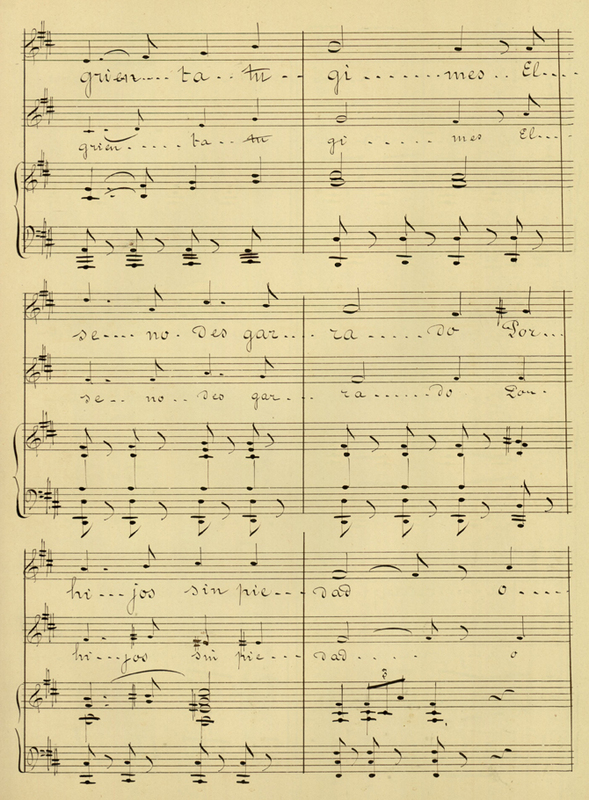 grien.... ta.. tu.. gi ....... mes.. El....
grien...... ta.. tu gi ..... mes El....
se.... no. des gar.... ra ..... do Por...
se... no.. des gar... ra ...... do Por.
hi... jos sin pie... dad o ....
hi... jos sin pie... dad ..... o
3